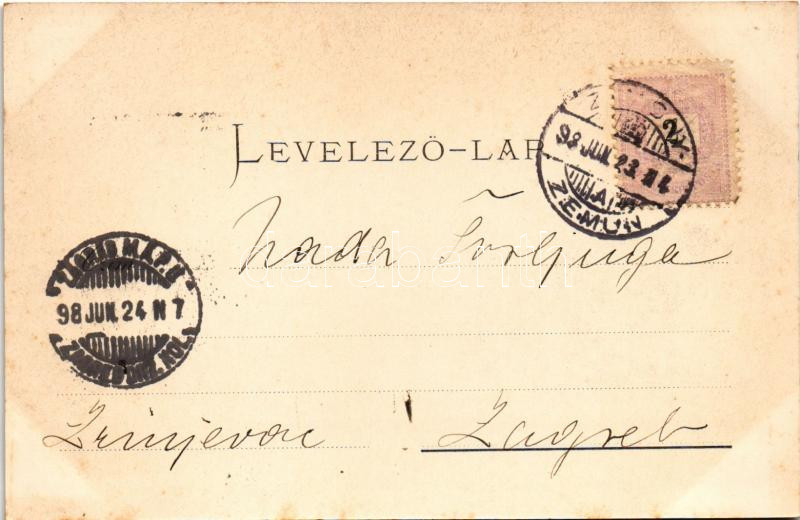 LEVELEZŐ-LAP
2
98 JUN. 23.
ZEMUN
Nada
98 JUN. 24 N 7
Zrinjevac Zagreb
darabanth